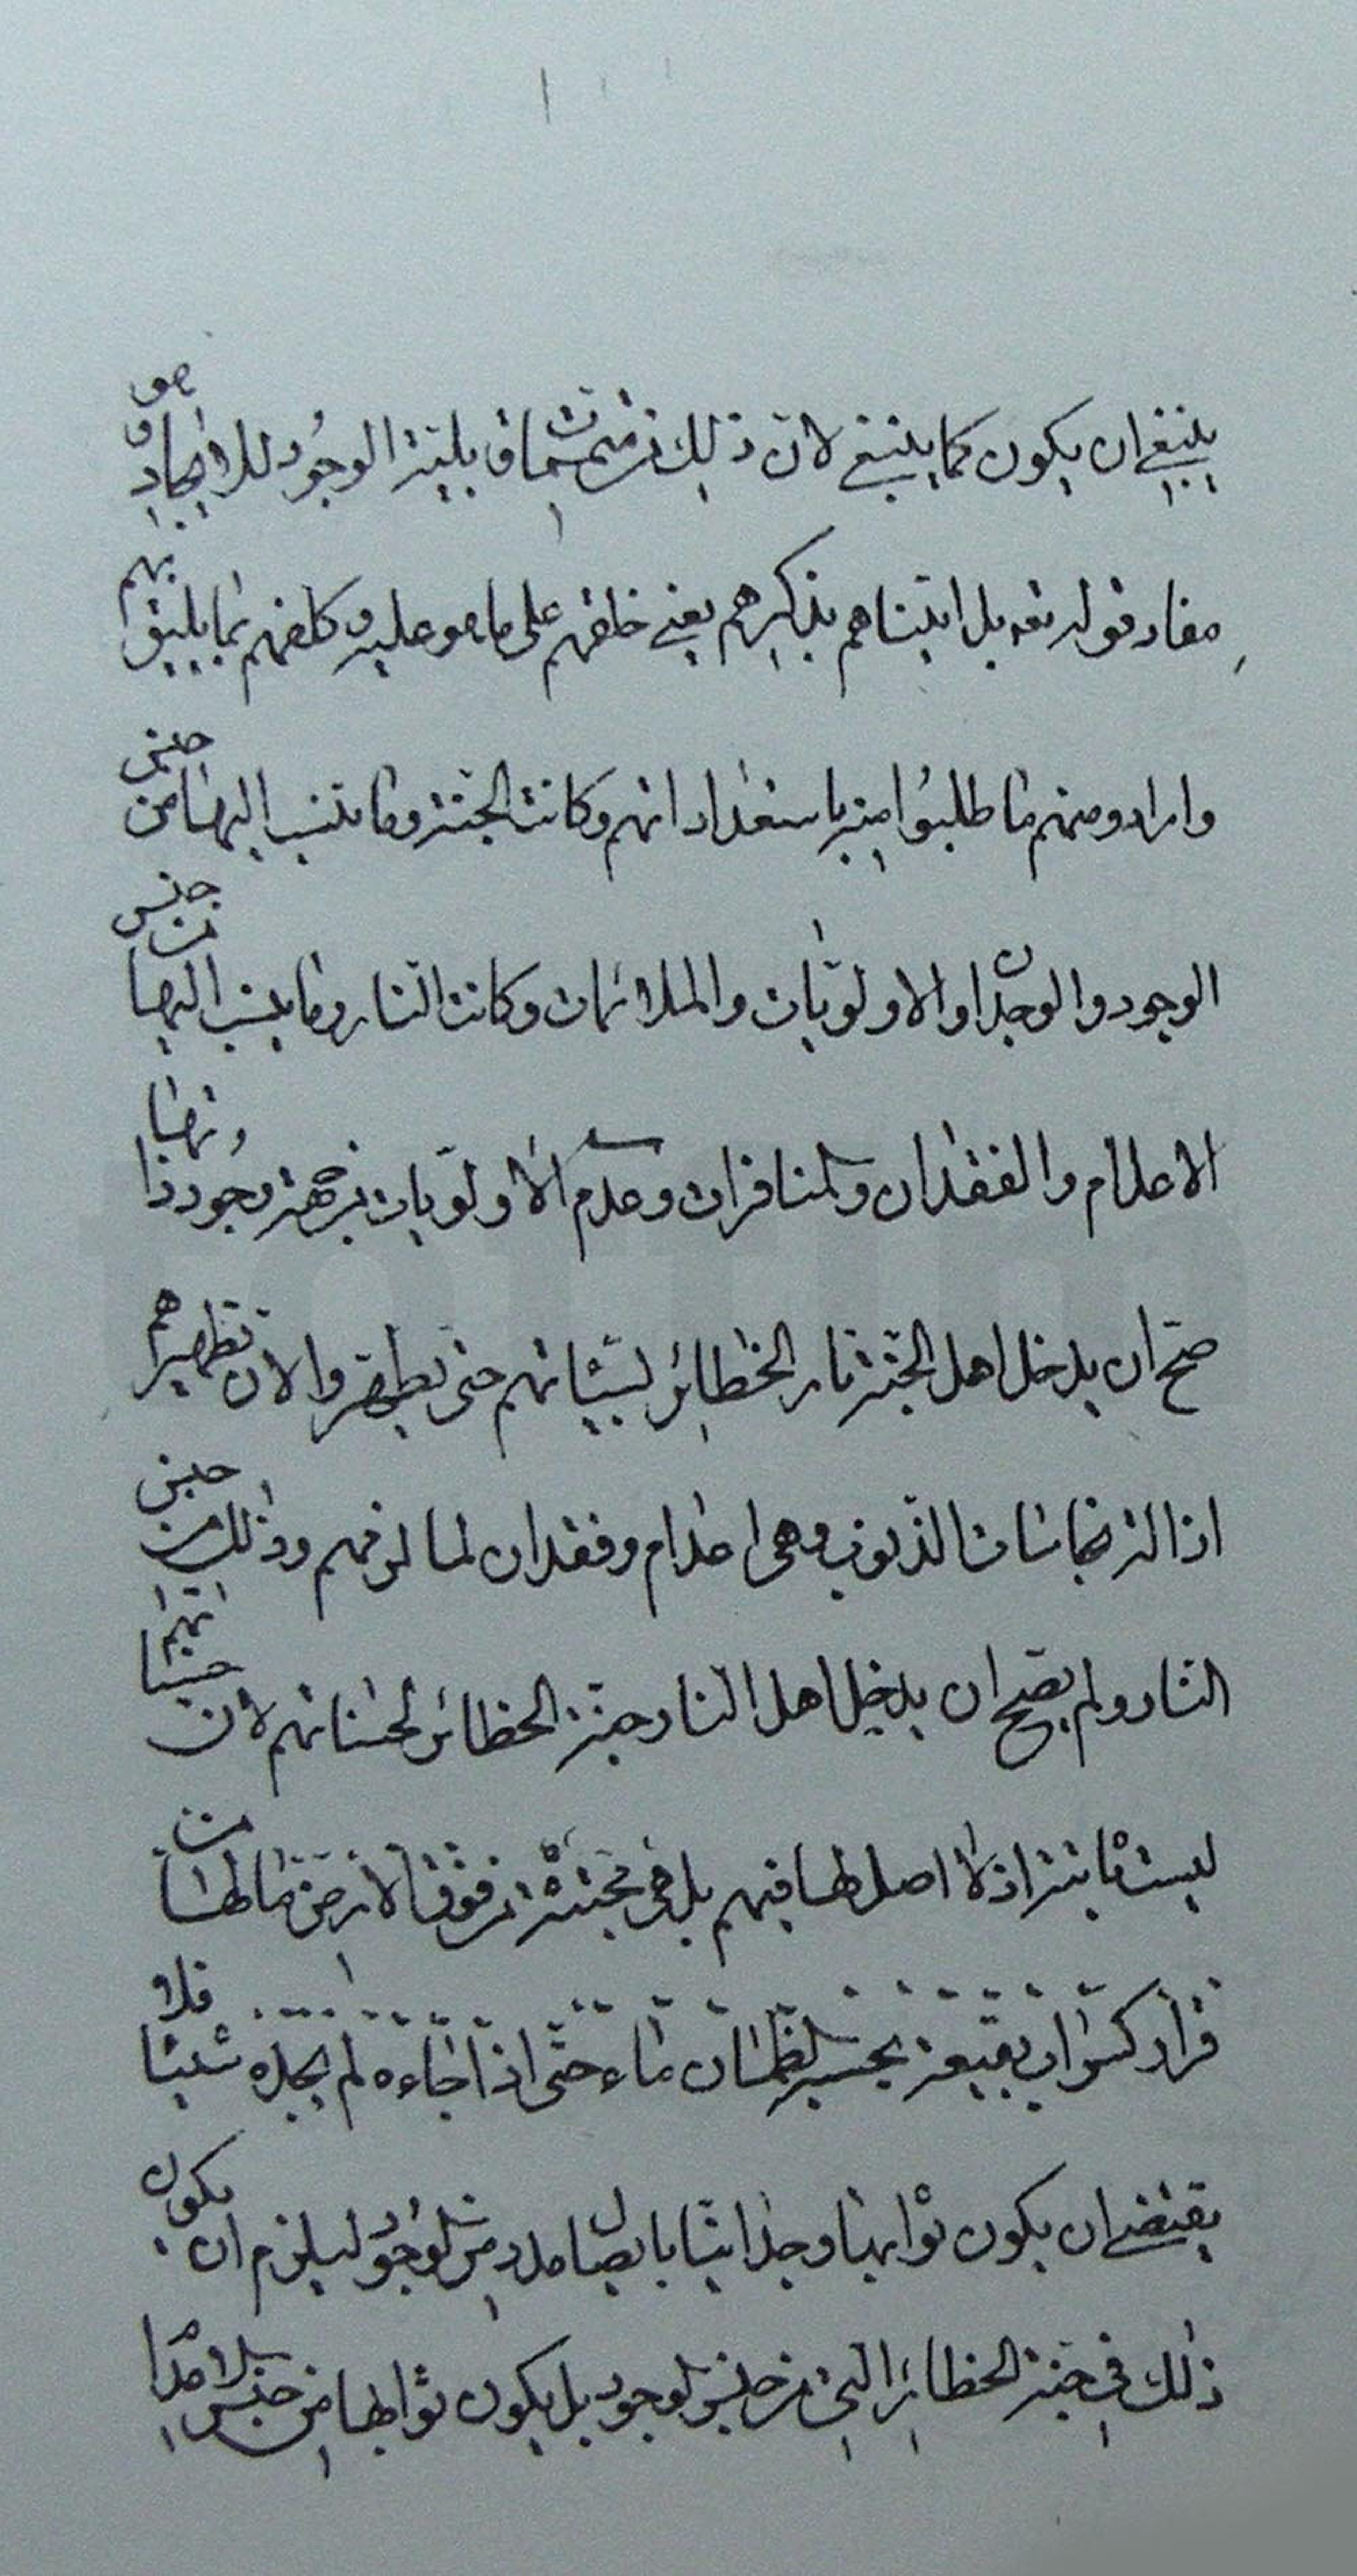 ينبغي ان يكون كما ينبغي لان ذلك من متممات بلية الوجود للايجاد وهو
مفاد قوله تعه بل اتيناهم بذكرهم يعني خلقهم على ما هو عليه وكلفهم بما يليق بهم
واراد منهم ما طلبوا منه باستعداداتهم وكانت الجنة وما ينسب اليها من جنس
الوجود والوجدان والاولويات والملائمات وكانت النار وما ينسب اليها من جنس
الاعدام والفقدان والمنافرات وعدم الاولويات من جهة وجود ذواتها
صح ان يدخل اهل الجنة نار الحظائر لسيئاتهم حتى يطهروا لان تطهيرهم
ازالة نجاسات الذنوب وهي اعدام وفقدان لما لزمهم وذلك من جنس
النار ولم يصح ان يدخل اهل النار جنة الحظائر لحسناتهم لان حسناتهم
ليست ثابتة اذ لا اصل لها فيهم بل هي مجتثة من فوق الارض ما لها من
قرار كسراب بقيعة يحسبه الظمان ماء حتى اذا جاءه لم يجده شيئا فلا
يقتضي ان يكون ثوابها وجدانيا بايصال مدد من الوجود ليلزم ان يكون
ذلك في جنة الحظائر التي من جنس الوجود بل يكون ثوابها من جنس